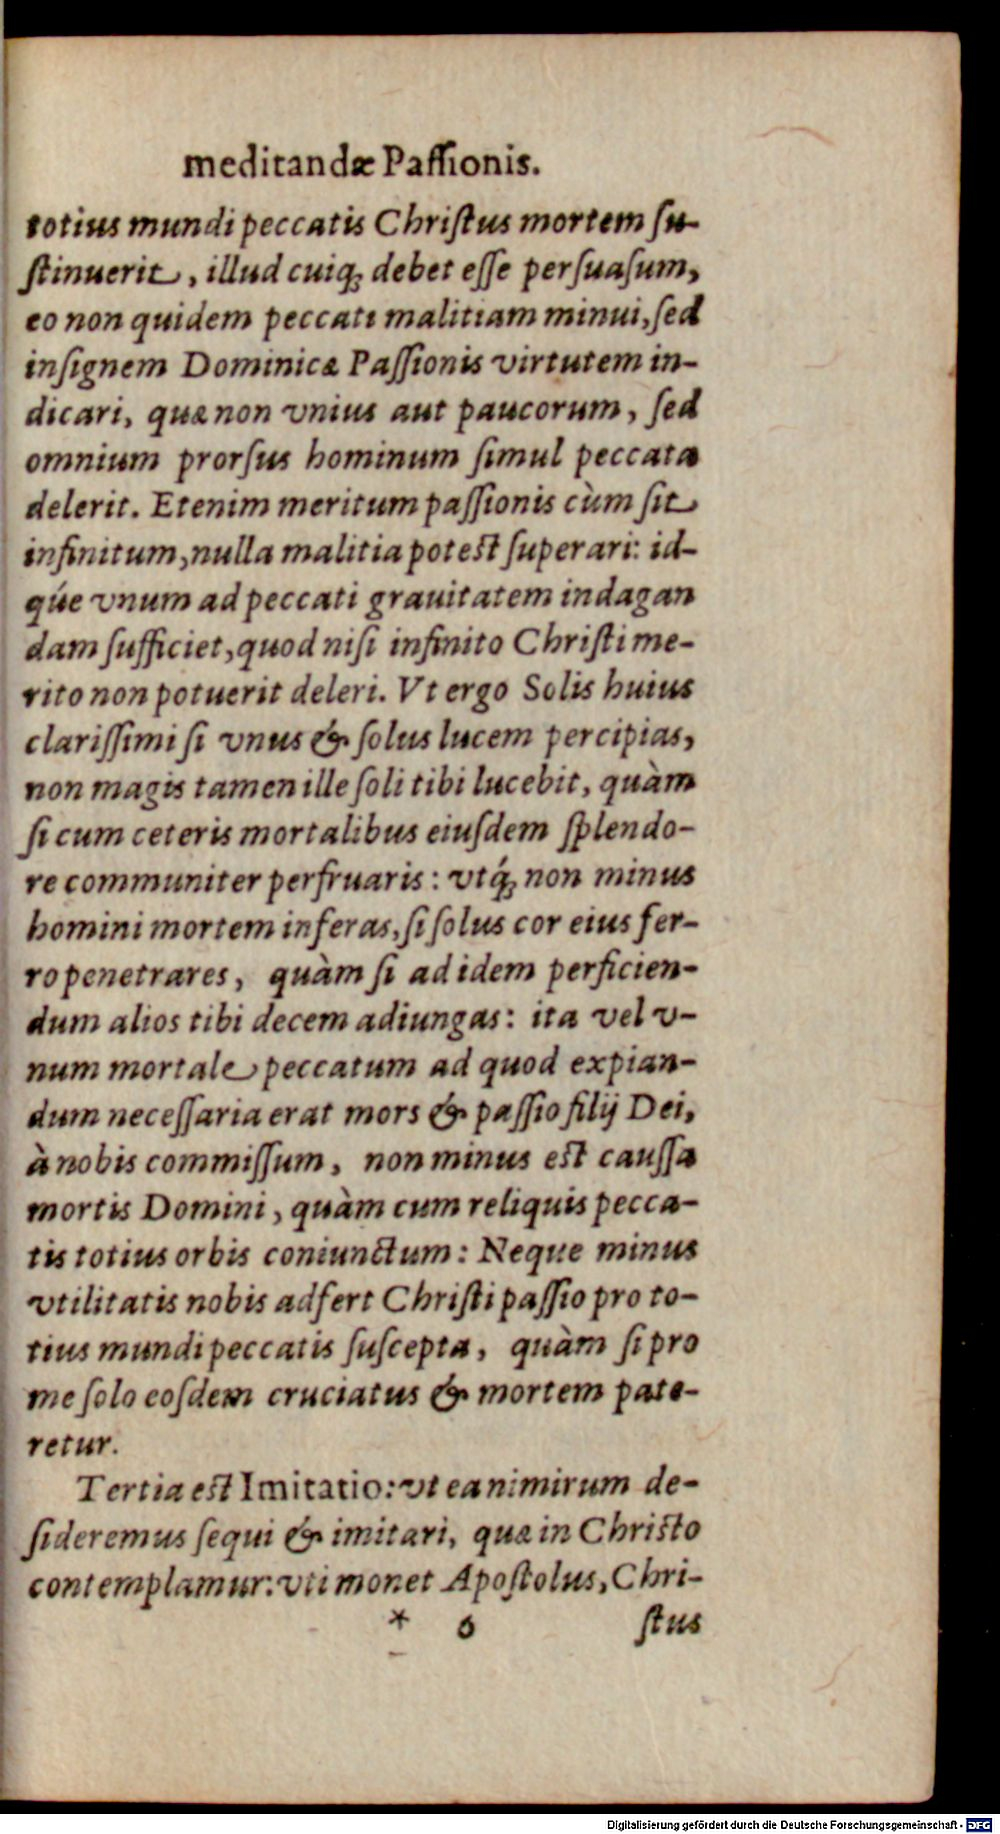 meditandæ Paſſionis.
totius mundi peccatis Chriſtus mortem ſu-
ſtinuerit, illud cuiq; debet eſſe perſuaſum,
eo non quidem peccati malitiam minui, ſed
inſignem Dominicæ Paſſionis virtutem in-
dicari, quæ non vnius aut paucorum, ſed
omnium prorſus hominum ſimul peccata
delerit. Etenim meritum paſſionis cùm ſit
infinitum, nulla malitia poteſt ſuperari: id-
qúe vnum ad peccati grauitatem indagan
dam ſufficiet, quod niſi infinito Chriſti me-
rito non potuerit deleri. Vt ergo Solis huius
clariſſimi ſi vnus & ſolus lucem percipias,
non magis tamen ille ſoli tibi lucebit, quàm
ſi cum ceteris mortalibus eiuſdem ſplendo-
re communiter perfruaris: vtq́; non minus
homini mortem inferas, ſi ſolus cor eius fer-
ro penetrares, quàm ſi ad idem perficien-
dum alios tibi decem adiungas: ita vel v-
num mortale peccatum ad quod expian-
dum neceſſaria erat mors & paſſio filij Dei,
à nobis commiſſum, non minus eſt cauſſa
mortis Domini, quàm cum reliquis pecca-
tis totius orbis coniunctum: Neque minus
vtilitatis nobis adfert Chriſti paſſio pro to-
tius mundi peccatis ſuſcepta, quàm ſi pro
me ſolo eoſdem cruciatus & mortem pate-
retur.
Tertia eſt Imitatio: vt ea nimirum de-
ſideremus ſequi & imitari, quæ in Chriſto
contemplamur: vti monet Apoſtolus, Chri-
* 6 ſtus
Digitalisierung gefördert durch die Deutsche Forschungsgemeinschaft - DFG